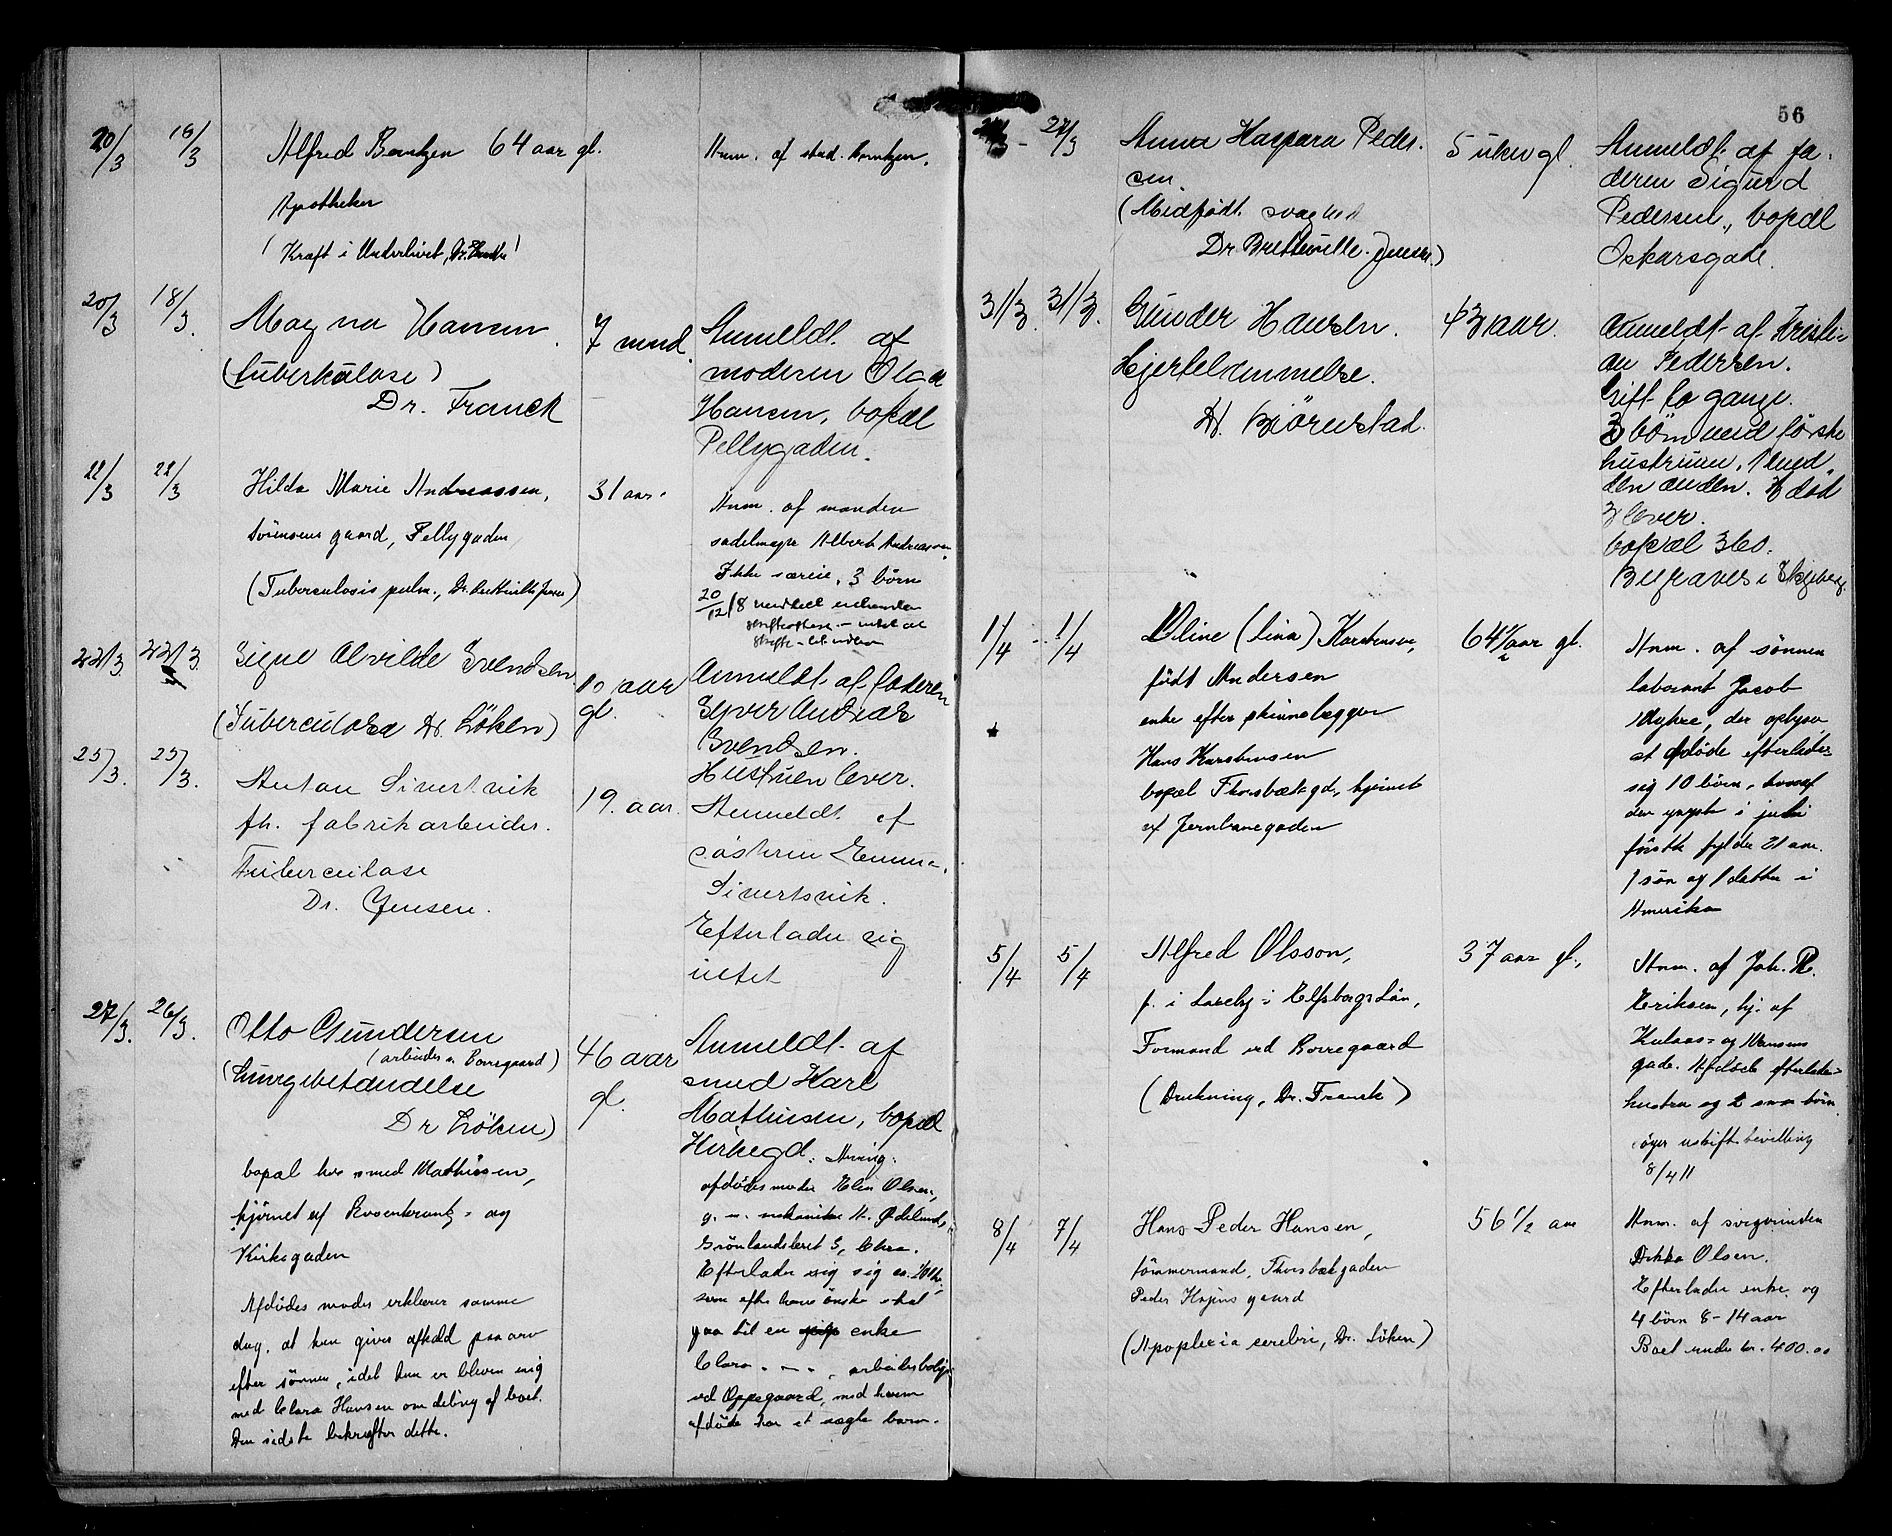 20/3 16/3 Alfred Berntzen 64 aar gl. Anm. af stud. Berntzen.
Apotheker
(Kræft i Underlivet, Dr.
20/3 18/3. Magna Hansen. 7 mnd. Anmeldt af
(tuberkulose) moderen Olga
Dr. Franck Hansen, bopæl
Pellygaden.
22/3 22/3 Hilda Marie Andreassen, 31 aar. Anm. af manden
Sørensens gaard, Pellygaden sadelmager Albert Andreassen
(Tuberculosis pulm., Dr. Bretteville Jensen) Ikke særeie, 3 börn
20/12 18 meddelt enkemanden
skifte
22/3. 22/3. Signe Alvilde Svendsen 10 aar gl. Anmeldt af faderen
(Tuberculose Dr. Löken) Syver Andreas
Svendsen.
Hustruen lever.
25/3. 25/3. Anton Sivertsvik 19. aar. Anmeldt af
fh. fabrikarbeider. søsteren Emma
Tuberculose Sivertsvik.
Dr. Jensen. Efterlader sig
intet
27/3. 26/3. Otto Gundersen 46 aar gl. Anmeldt af
(arbeider v. Borregaard) smed Karl
(Lungebetændelse Mathisen, bopæl
Dr Löken) Kirkegd.
bopæl hos smed Mathissen, afdødes moder Elen Olsen,
hjörnet af Rosenkrantz- og g. m. mekaniker A. Ødelund,
Kirkegaden Grönlandsleret 3, Chra.
Efterlader sig
Afdödes moder erklærer samme som efter hans önske skal
dag, at hun giver afkald paa arv gaa til en enke
efter sönnen, idet hun er bleven enig Clara - " - , arbeiderbolig
med Clara Hansen om deling af boet. ved Oppegaard, med hvem
Den sidste bekræfter dette. afdöde har et uægte barn.
56
27/3 - 27/3 Anna Kaspara Peder- 5 uker gl. Anmeldt af fa-
sen. deren Sigurd
(Medfödt svaghed Pedersen, bopæl
Dr Bretteville-Jensen.) Oskarsgade.
31/3. 31/3. Gunder Hansen. 43 aar. Anmeldt af Kristi-
Hjertelammelse. an Pedersen.
Dr. Björnstad. Gift to gange.
3 börn med förste
hustruen, 1 med
den anden. død
3 lever.
bopæl 360.
Begraves i Skjeberg.
1/4 - 1/4 Oline (Lina) Karstensen, 64 1/2 aar gl. Anm. af sönnen
födt Andersen laborant Jacob
enke efter skinnelægger Myhre, der oplyser
Hans Karstensen at afdøde efterlader
bopæl Thorsbækgd, hjörnet sig 10 börn, hvoraf
af Jernbanegaden den yngste i juli
förstk. fylder 21 aar.
1 sön og 1 datter i
Amerika
5/4 5/4 Alfred Olsson, 37 aar gl., Anm. af Joh. R.
f. i Laxeby i Elfsborgs Län, Eriksen, hj. af
Formand ved Borregaard Kulaas- og Hansens
(Drukning, Dr. Franck) gade. Afdöde efterlader
hustru og 2 smaa börn
söger uskiftebevilling
8/4 11
8/4 7/4 Hans Peder Hansen, 56 1/2 aar Anm. af svigerinden
tömmermand, Thorsbækgaden Olsen.
Peder Kajens gaard Efterlader enke og
(Apoplexia cerebri, Dr. Löken) 4 börn 8-14 aar
Boet under kr. 400.00